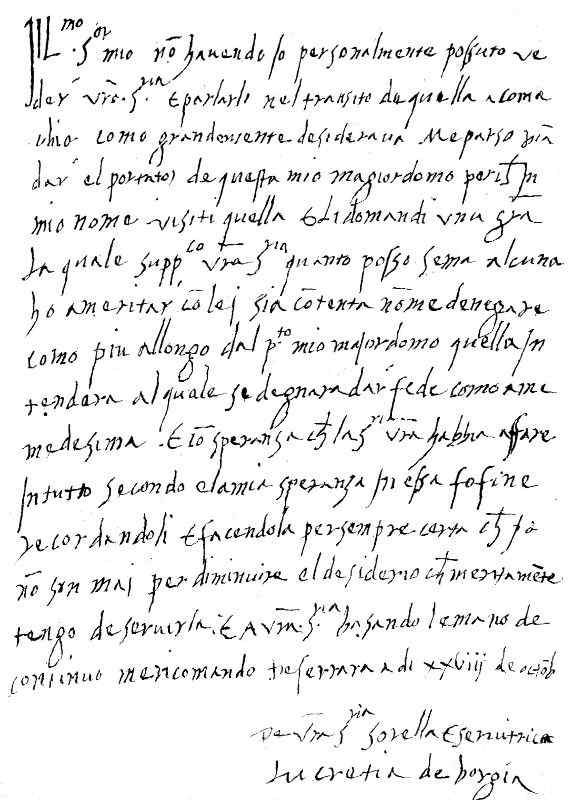 Ill^mo S^or mio nō havendo Io personalmente possuto ve
der' vrā S^ria E parlarli nel transito de quella a coma
chio como grandemente desiderava Me parso
dar' el portator de questa mio magiordomo per ch̄ In
mio nome visiti quella E li domandi una grā
La quale supp^co vrā S^ria quanto posso sema alcuna
ho a meritar' cō lej sia cōtenta nō me denegare
como piu allongo dal p^to mio majordomo quella In
tendera al quale se degnara dar' fede como a me
medesima . E cō speranza ch̄ la S^ria vrā habbia affare
In tutto secondo e la mia speranza In essa fo fine
recordandoli E facendola per sempre certa ch̄ Io
nō son maj per diminuire el desiderio ch̄ meritamēte
tengo de servirla: E A vrā S^ria basando le mano de
continuo me ricomando ferrara a di xxviij de octōb
De vrā S^ria Sorella E servitrice
Lucretia de borgia